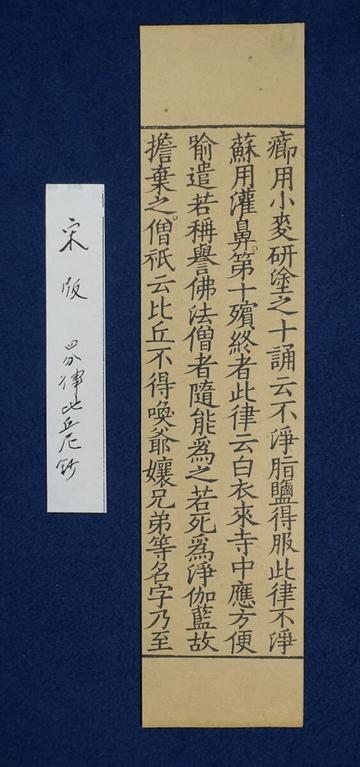 癤用小麥研塗之十誦云不淨脂鹽得服此律不淨
蘇用灌鼻。第十殯終者此律云白衣來寺中應方便
喻遣若稱譽佛法僧者隨能爲之若死爲淨伽藍故
擔棄之。僧祇云比丘不得喚爺孃兄弟等名字乃至
宋版 四分律比丘尼鈔